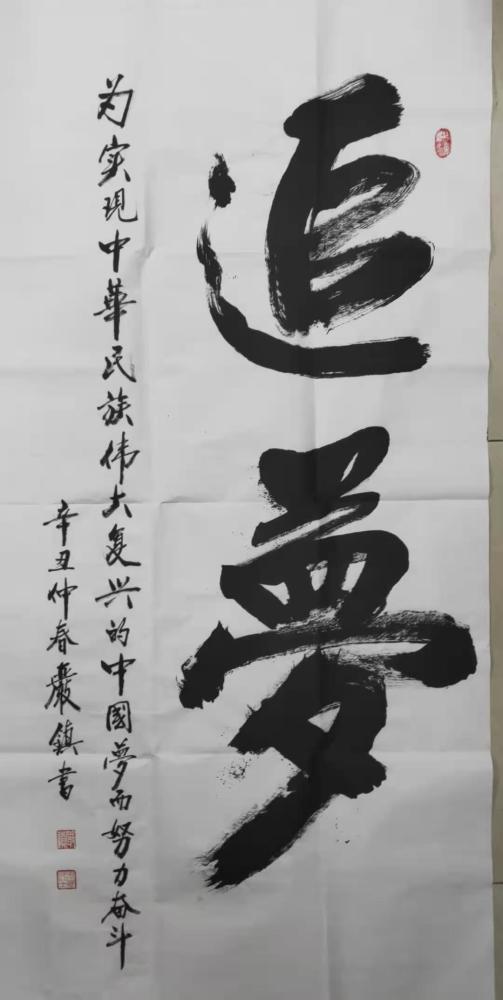 追夢
为实現中華民族伟大复兴的中國夢而努力奋斗
辛丑仲春嚴鎮书